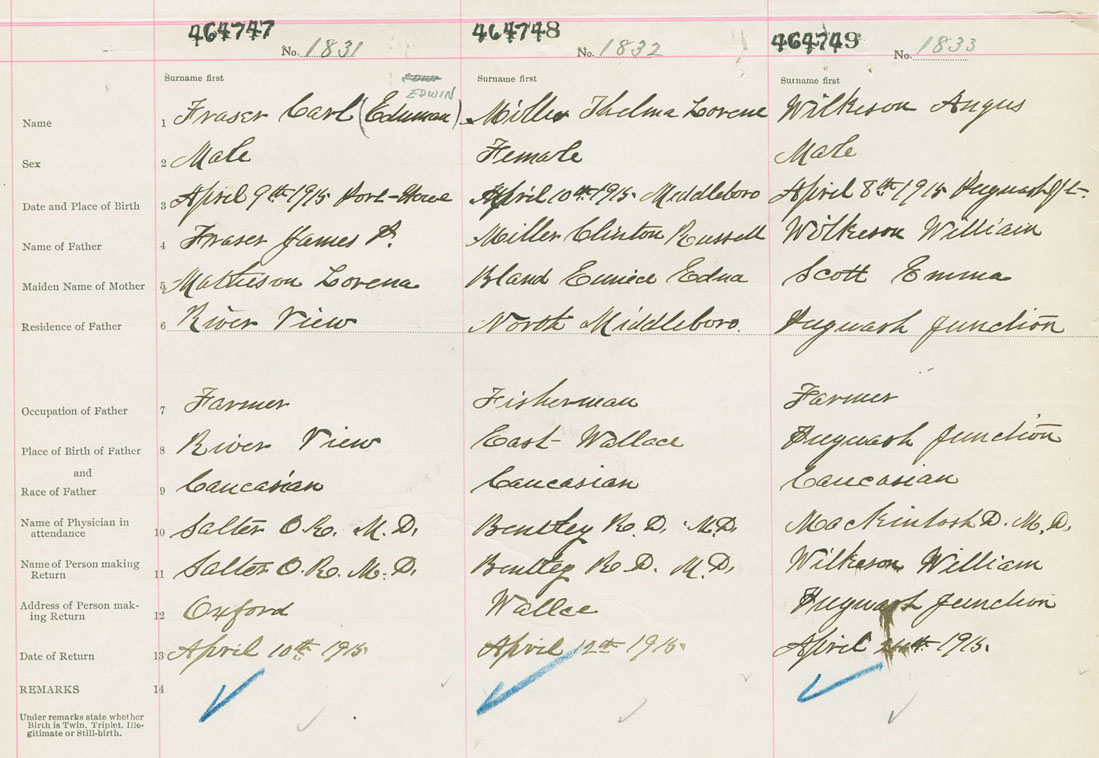 464747 464748 464749
No. 1831 No. 1832 No. 1833
Surname first Surname first Surname first
EDWIN
Name 1 Fraser Carl (Edwman) Miller Thelma Lorene Wilkeson Angus
Sex 2 Male Female Male
Date and Place of Birth 3 April 9th 1915 Port-Howe April 10th 1915. Middleboro April 8th 1915 Pugwash Jct-
Name of Father 4 Fraser James Miller Clinton Russell Wilkeson William
Maiden Name of Mother 5 Matheson Lorena Bland Eunice Edna Scott Emma
Residence of Father 6 River View North Middleboro. Pugwash Junction
Occupation of Father 7 Farmer Fisherman Farmer
Place of Birth of Father 8 River View East-Wallace Pugwash Junction
and
Race of Father 9 Caucasian Caucasian Caucasian
Name of Physician in
attendance 10 Salter O.R. M.D. Bentley R.D. M.D. MacKintosh D. M.D.
Name of Person making
Return 11 Salter O.R. M.D. Bentley R D. M.D. Wilkeson William
Address of Person mak-
ing Return 12 Oxford Wallce Pugwash Junction
Date of Return 13 April 10th 1915 April 12th 1915. April 1915.
REMARKS 14
Under remarks state whether
Birth is Twin. Triplet. Ille-
gitimate or Still-birth.